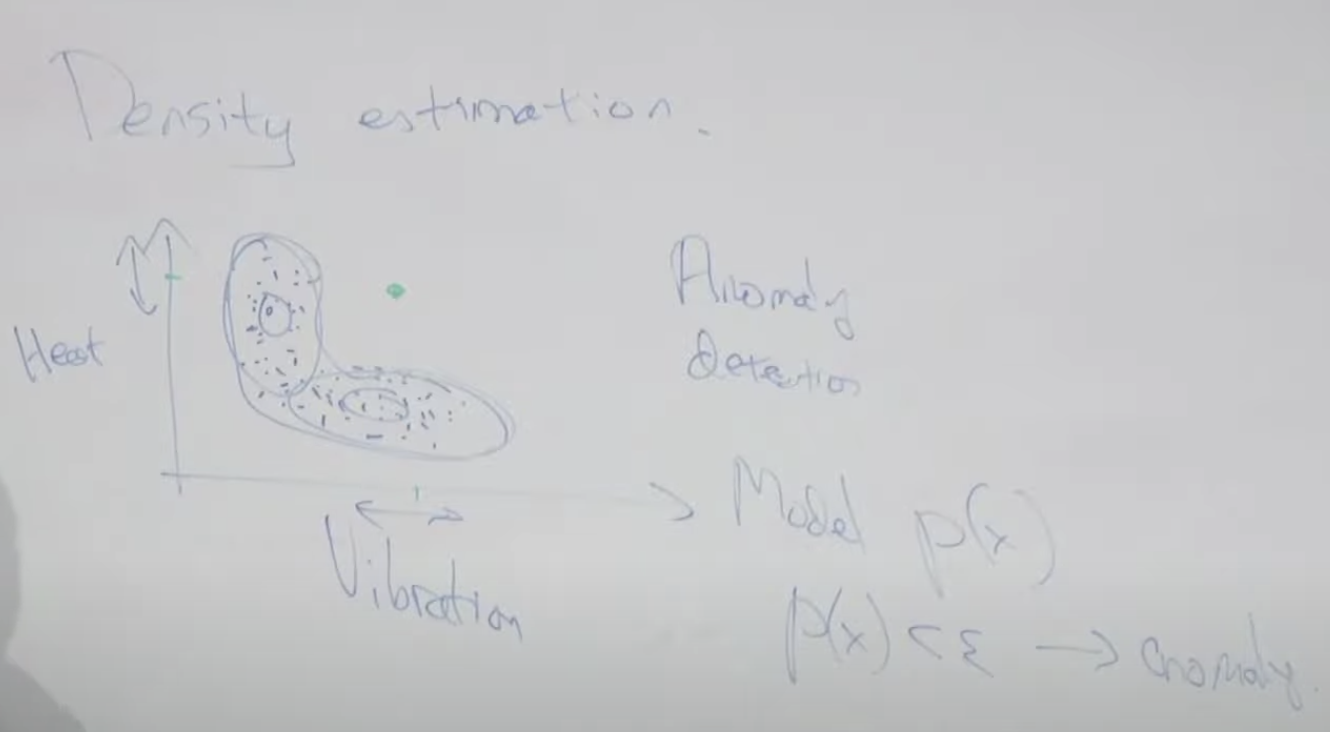 Density estimation.
Heat
Vibration
Anomaly
detection
Model p(x)
p(x) < ε → anomaly.